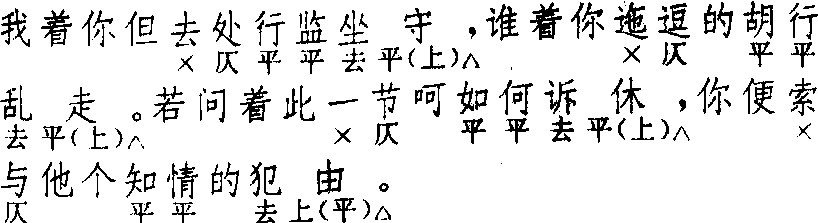 我着你但去处行监坐守,谁着你迤逗的胡行
× 仄 平 平 去 平(上)△ × 仄 平 平
乱走。若问着此一节呵如何诉休,你便索
去 平(上)△ × 仄 平 平 去 平(上)△ ×
与他个知情的犯由。
仄 平 平 去 上(平)△